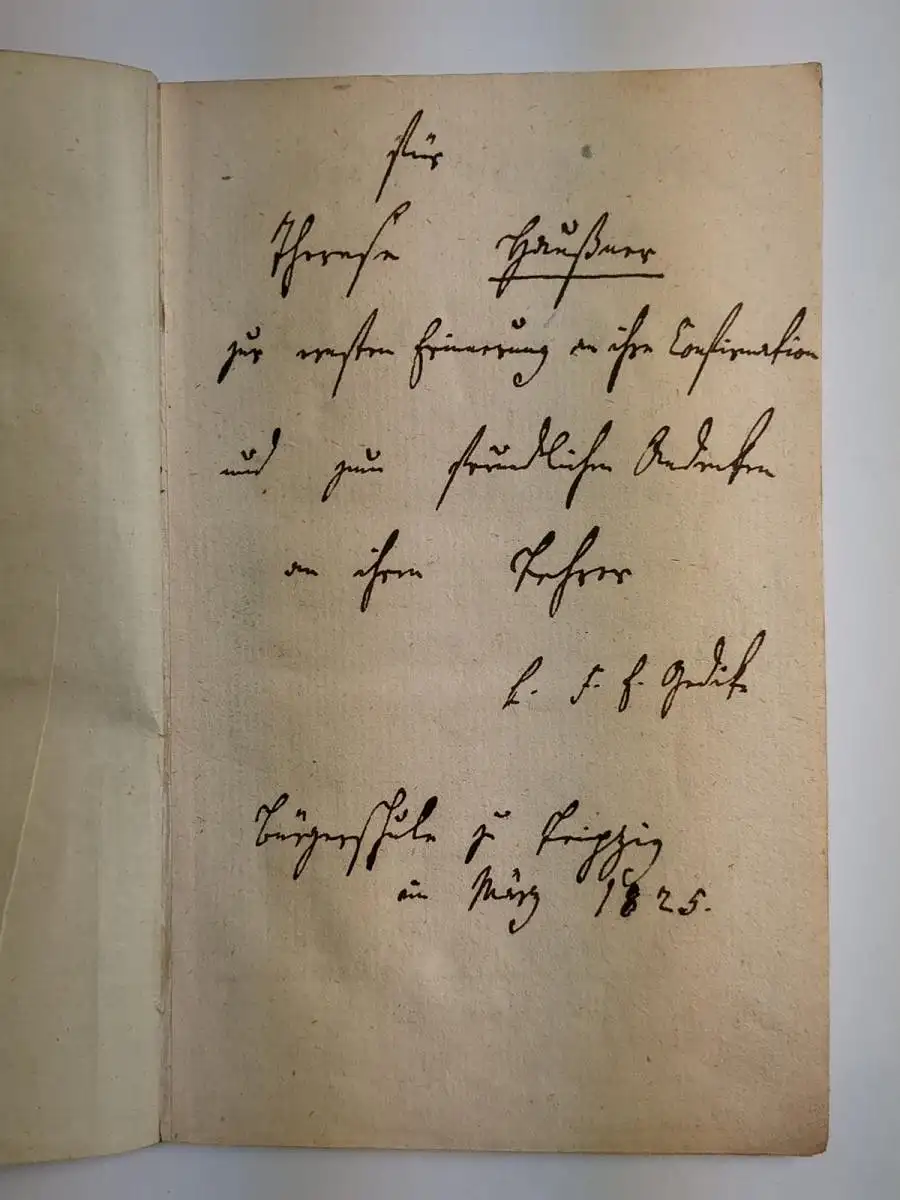 Für
Therese Haußner
zur ernsten Erinnerung an ihre Confirmation
und zum freundlichen Andenken
an ihren Lehrer
L. F. E. Gedike
Bürgerschule zu Leipzig
im März 1825.